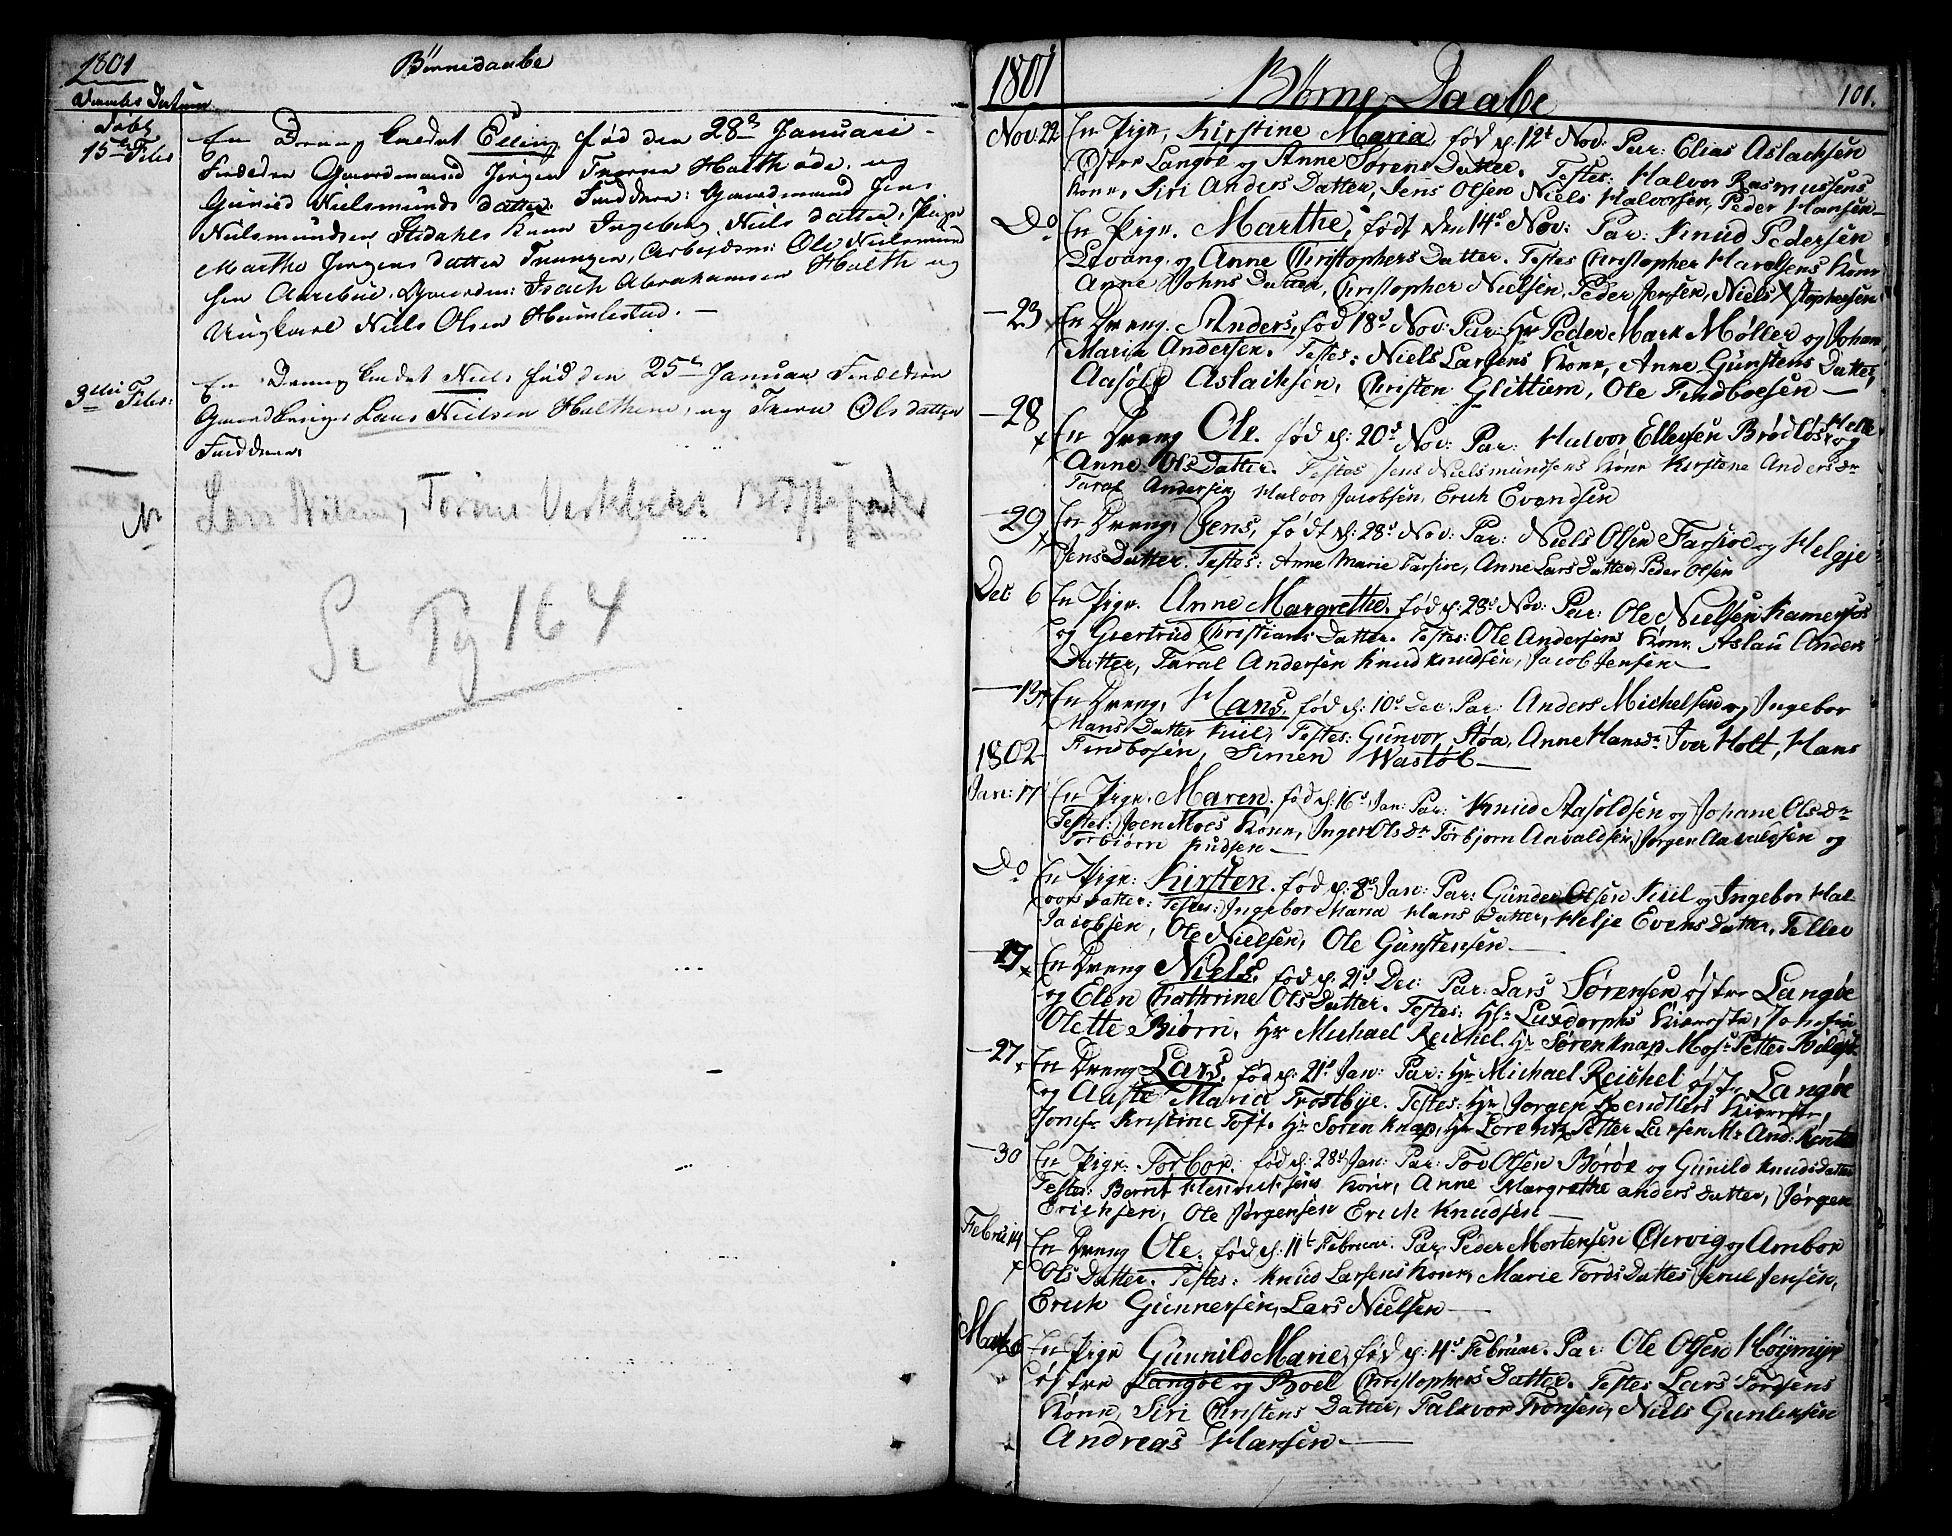 1801
Børnedaabe
Daabs Datum
Døbt
15de Febr
En Dreng kaldet Elling fød den 28de Januari
Forældre Gaardmand Jørgen Holth øde, og
Gunild Nielsmunds datter. Fadderne: Gaardmand Jens
Nielsmundsen Kone Ingebor Niels datter, Pige
Marthe Jørgens datter Arbejdsm: Ole Nielsmund
sen Aarebue, Isach Abrahamsen Holth og
Ungkarl Niels Olsen Humlestad. —
3die Febr:
En Dreng kaldet Niels fød den 25de Januar Forældrene
Lars Nielsen og Olsdatter
Fadderne
Lars Nilsen, Bedstefader
Se Pg 164
1801
Børne Daabe
101.
Nov. 22
En Pige, Kirstine Maria, fød d: 12t Nov. Par: Elias Aslachsen
Østre Langøe og Anne Sørens Datter. Testes: Halvor Rasmussens
Kone, Siri Anders Datter, Jens Olsen Niels Halvorsen, Peder Hansen —
Do
En Pige. Marthe, født den 14d Nov: Par: Knud Pedersen
Levang. og Anne Christophers Datter. Testes Christopher Kone
Anne Johns Datter, Christopher Nielsen, Peder Jensen, Niels Xstophersen
— 23
En Dreng. Anders, fød 18d Nov: Par: Hr Peder Mark Møller og Johan
Maria Andersen. Testes: Niels Larsens Kone, Anne Gunstens Datter,
Aasold Aslachsen, Christen Glittum, Ole Findboesen —
— 28
En Dreng Ole. fød d: 20d Nov: Par: Halvor Ellefsen Brødløs og
Anne Ols Datter. Testes Jens Nielsmundsens Kone Kirstene Anders Dr
Taral Andersen, Halvor Jacobsen, Erich Evendsen
— 29
En Dreng, Jens, født d: 28d Nov: Par: Niels Olsen Farsioe og Helgje
Jens Datter. Testes: Anne Marie Farsioe, Anne Lars Datter, Peder Olsen
Dec 6
En Pige. Anne Margrethe. fød d: 28d Nov: Par: Ole Nielsen
og Gjertrud Christians Datter. Testes: Ole Andersens Kone, Aslau Anders
Datter, Taral Andersen Knud Knudsen, Jacob Jensen —
— 13
En Dreng, Hans, fød d: 10d Dec. Par: Anders Michelsen og Ingebor
Hans Datter Kiil, Testes: Gunvor Støa, Anne Hansdr Iver Holt, Hans
Findbosen, Simen Wastøl —
1802
Jan: 17
En Pige. Maren. fød d: 16d Jan: Par: Knud Aasoldsen og Johane Ols Dr
Testes: Joen Moes Kone, Inger Ols Dr Torbjorn Anvaldsen, Jørgen Anvaldsen og
Torbiørn Knudsen —
Do
En Pige: Kirsten. fød d: 8d Jan: Par: Gunder Olsen Kiil og Ingebor Hal
vors Datter: Testes: Ingebor Maria Hans Datter, Helje Evens Datter, Tellev
Jacobsen, Ole Nielsen, Ole Gunstensen —
— 17
En Dreng Niels. fød d: 21d Dec: Par: Lars Sørensen østre Langøe
og Elen Chathrine Ols Datter. Testes: Hr Luxdorphs Kiæreste, Jomfru
Olette Biørn, Hr Michael Reichel Hr Søren Knap, Mosr Petter
— 27
En Dreng Lars, fød d: 21d Jan: Par: Hr Michael Reichel østre Langøe
og Aaste Maria Trostbye. Testes: Hr Jørgen Kiæreste,
Jomfr Kristine Toft. Hr Søren Knap, Hr Lorentz Petter Larsen Mr And:
— 30
En Pige: Torbor: fød d: 28d Jan: Par: Tov Olsen Børøe og Gunild Knudsdatter
Testes: Bernt Henrichsens Kone, Anne Margrethe anders Datter, Jørgen
Erichsen, Ole Jørgensen Erich Knudsen —
Febru: 14
En Dreng Ole: fød d: 11t Februar. Par. Peder Mortensen og Ambor
Ols Datter. Testes: Knud Larsens Kone, Marie Tords Datter Jensen,
Erich Gunnersen, Lars Nielsen —
Marti 6
En Pige Gunnild Marie, fød d: 4d Februar. Par: Ole Olsen Høymyr
østre Langøe og Boel Christophers Datter. Testes Lars Tordsens
Kone, Siri Christens Datter, Falkvor Tronsen, Niels Gunlensen
Andreas Hansen —